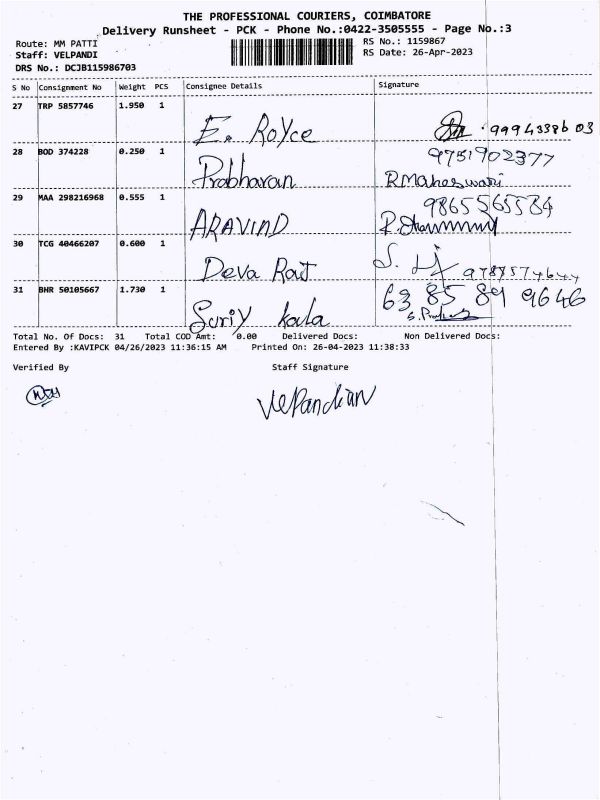 THE PROFESSIONAL COURIERS, COIMBATORE
Delivery Runsheet - PCK - Phone No.:0422-3505555 - Page No.:3
Route: MM PATTI RS No.: 1159867
Staff: VELPANDI RS Date: 26-Apr-2023
DRS No.: DCJB115986703
S No Consignment No Weight PCS Consignee Details Signature
27 TRP 5857746 1.950 1
E. Royce
28 BOD 374228 0.250 1 9751902377
Prabharan R.Maheswari
29 MAA 298216968 0.555 1 9865565584
ARAVIND
30 TCG 40466207 0.600 1
Deva Raj
31 BHR 50105667 1.730 1 63 85 89 9646
Suriy kala
Total No. Of Docs: 31 Total COD Amt: 0.00 Delivered Docs: Non Delivered Docs:
Entered By :KAVIPCK 04/26/2023 11:36:15 AM Printed On: 26-04-2023 11:38:33
Verified By Staff Signature
VelPandian